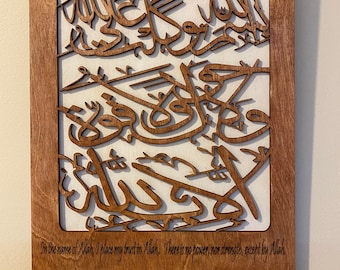 بسم الله توكلت على الله
لا حول ولا قوة
إلا بالله
In the name of Allah, I place my trust in Allah, There is no power, nor strength, except by Allah.